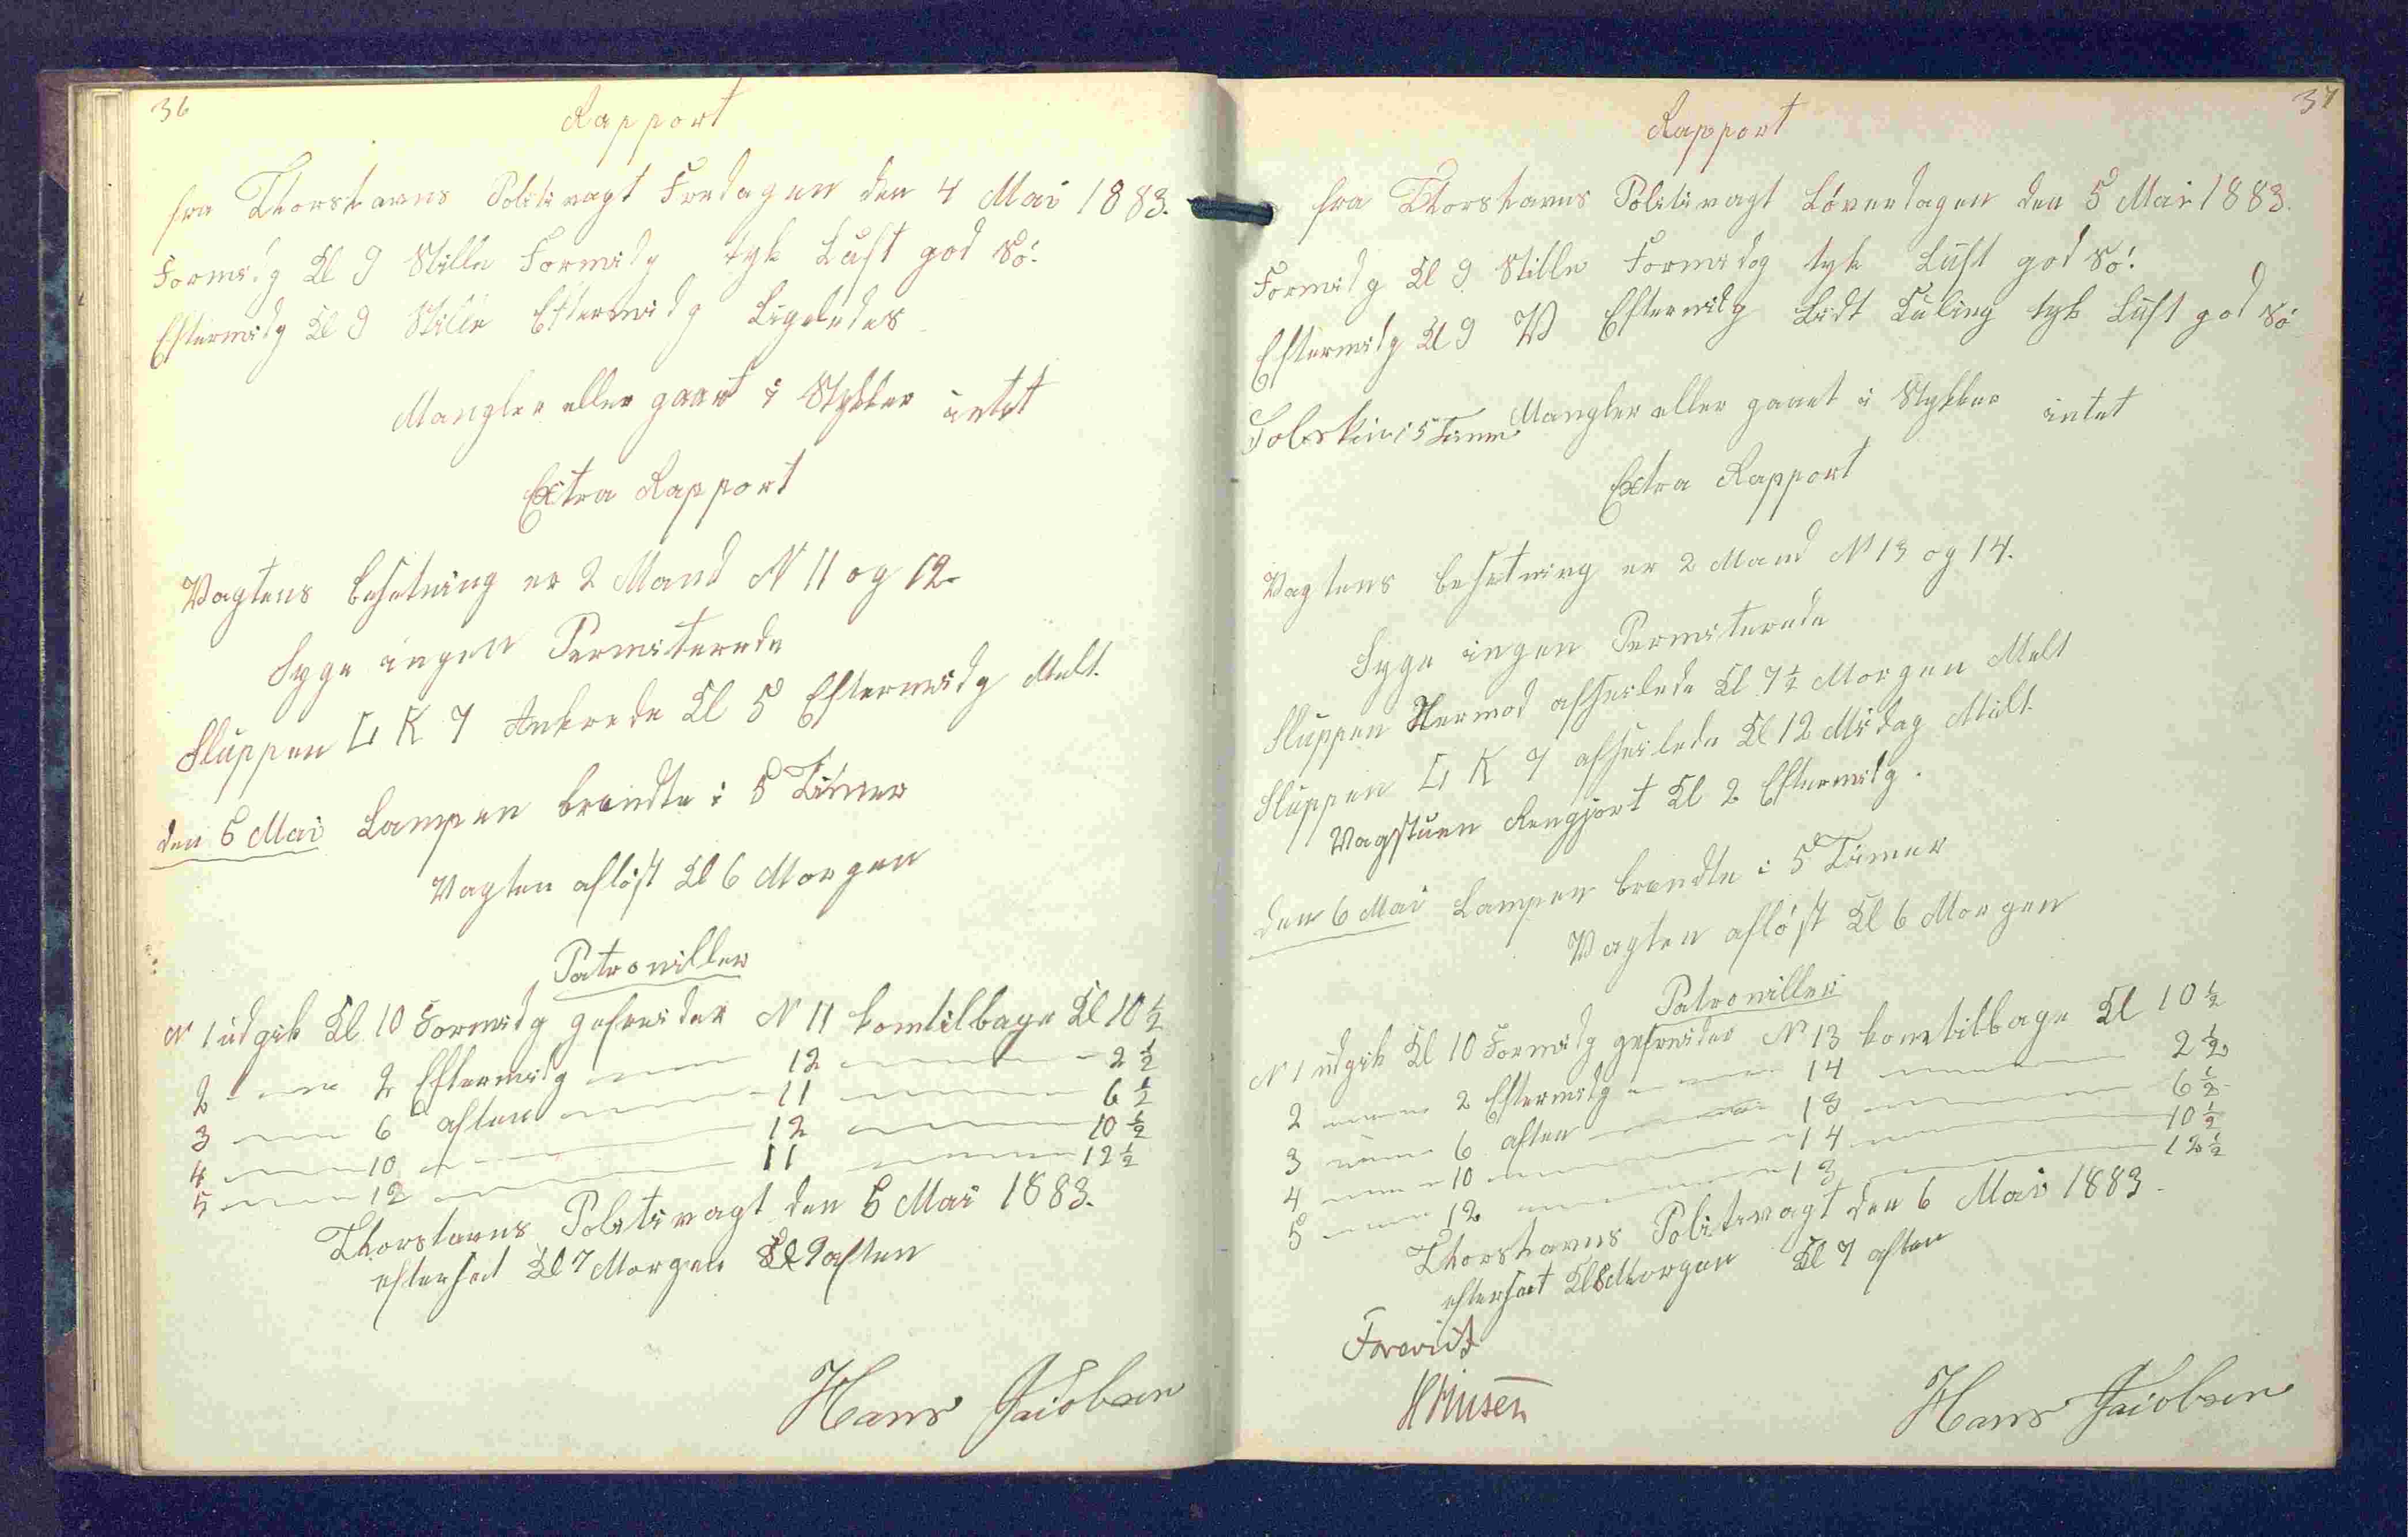 36
Rapport
fra Thorshavns Politivagt Fredagen den 4 Mai 1883.
Formidg Kl 9 Stille Formidg tyk Luft god Sö.
Eftermidg Kl 9 Stille Eftermidg Ligeledes
Mangler eller gaaet i Stykker intet
Extra Rapport
Vagtens besetning er 2 Mand N 11 og 12.
Syge ingen Permiterede
Sluppen L K 7 Ankrede Kl 5 Eftermidg Melt.
den 5 Mai Lampen brendte i 5 Timer
Vagten aflöst Kl 6 Morgen
Patroniller
N 1 udgik Kl 10 Formidg gefreider N 11 kom tilbage Kl 10 ½
2 — 2 Eftermidg — 12 — 2 ½
3 — 6 aften — 11 — 6 ½
4 — 10 — 12 — 10 ½
5 — 12 — 11 — 12 ½
Thorshavns Politivagt den 5 Mai 1883.
efterset Kl 7 Morgen Kl 9 aften
Hans Jacobsen
37
Rapport
fra Thorshavns Politivagt Löverdagen den 5 Mai 1883.
Formidg Kl 9 Stille Formidag tyk Luft god Sö.
Eftermidg Kl 9 V Eftermidg Lidt Kuling tyk Luft god Sö
Solskin i 5 Timer Mangler eller gaaet i Stykker intet
Extra Rapport
Vagtens besetning er 2 Mand N 13 og 14.
Syge ingen Permiterede
Sluppen Hermod afseilede Kl 7½ Morgen Melt
Sluppen L K 7 afseilede Kl 12 Midag Melt.
Vagstuen Rengjort Kl 2 Eftermidg.
den 6 Mai Lampen brendte i 5 Timer
Vagten aflöst Kl 6 Morgen
Patroniller
N 1 udgik Kl 10 Formidg gefreider N 13 kom tilbage Kl 10 ½
2 — 2 Eftermidg — 14 — 2 ½
3 — 6 aften — 13 — 6 ½
4 — 10 — 14 — 10 ½
5 — 12 — 13 — 12 ½
Thorshavns Politivagt den 6 Mai 1883.
efterset Kl 8 Morgen Kl 7 aften
Forevist
Hans Jacobsen